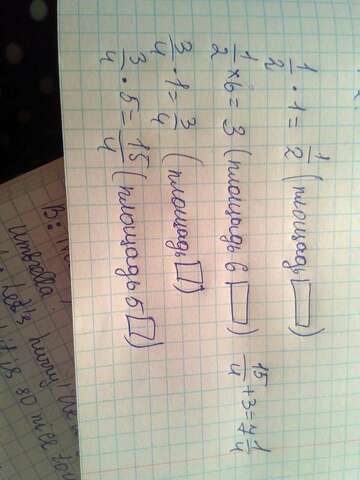 1/2 · 1 = 1/2 (площадь ▭)
1/2 × 6 = 3 (площадь 6 ▭) 15/4 + 3 = 7 1/4
3/4 · 1 = 3/4 (площадь □)
3/4 · 5 = 15/4 (площадь 5 □)
B:
umbrella.
Let's hurry!
is so nice